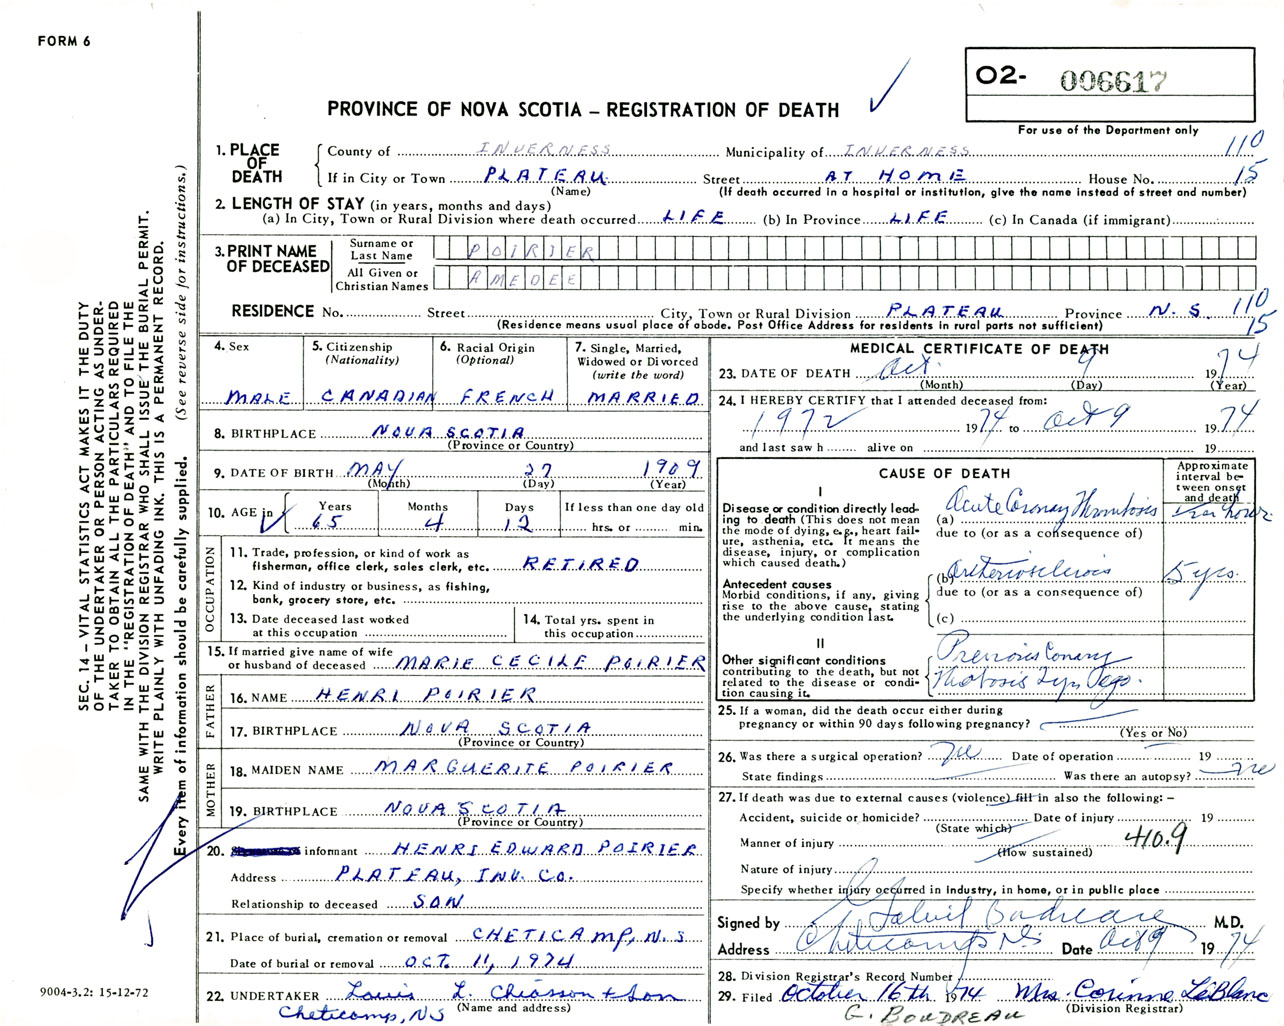 FORM 6
O2- 006617
PROVINCE OF NOVA SCOTIA – REGISTRATION OF DEATH
For use of the Department only
1. PLACE OF DEATH
County of INVERNESS Municipality of INVERNESS 110
If in City or Town PLATEAU Street AT HOME House No. 15
(Name) (If death occurred in a hospital or institution, give the name instead of street and number)
2. LENGTH OF STAY (in years, months and days)
(a) In City, Town or Rural Division where death occurred LIFE (b) In Province LIFE (c) In Canada (if immigrant)
3. PRINT NAME OF DECEASED
Surname or Last Name POIRIER
All Given or Christian Names AMEDEE
RESIDENCE No. Street City, Town or Rural Division PLATEAU Province N.S. 110
(Residence means usual place of abode. Post Office Address for residents in rural parts not sufficient) 15
4. Sex
MALE
5. Citizenship
(Nationality)
CANADIAN
6. Racial Origin
(Optional)
FRENCH
7. Single, Married,
Widowed or Divorced
(write the word)
MARRIED
8. BIRTHPLACE NOVA SCOTIA
(Province or Country)
9. DATE OF BIRTH MAY 27 1909
(Month) (Day) (Year)
10. AGE in
Years Months Days If less than one day old
65 4 12 hrs. or min.
OCCUPATION
11. Trade, profession, or kind of work as
fisherman, office clerk, sales clerk, etc. RETIRED
12. Kind of industry or business, as fishing,
bank, grocery store, etc.
13. Date deceased last worked
at this occupation
14. Total yrs. spent in
this occupation
15. If married give name of wife
or husband of deceased MARIE CECILE POIRIER
FATHER
16. NAME HENRI POIRIER
17. BIRTHPLACE NOVA SCOTIA
(Province or Country)
MOTHER
18. MAIDEN NAME MARGUERITE POIRIER
19. BIRTHPLACE NOVA SCOTIA
(Province or Country)
20. informant HENRI EDWARD POIRIER
Address PLATEAU, INV. CO.
Relationship to deceased SON
21. Place of burial, cremation or removal CHETICAMP, N.S
Date of burial or removal OCT. 11, 1974
22. UNDERTAKER Louis L. Chiasson + Son
(Name and address)
Cheticamp, NS
MEDICAL CERTIFICATE OF DEATH
23. DATE OF DEATH Oct. 9 1974
(Month) (Day) (Year)
24. I HEREBY CERTIFY that I attended deceased from:
1972 1974 to Oct 9 1974
and last saw h alive on 19
CAUSE OF DEATH
Approximate
interval be-
tween onset
and death
I
Disease or condition directly lead-
ing to death (This does not mean
the mode of dying, e.g., heart fail-
ure, asthenia, etc. It means the
disease, injury, or complication
which caused death.)
(a) Acute Coronary Thrombosis hour
due to (or as a consequence of)
Antecedent causes
Morbid conditions, if any, giving
rise to the above cause, stating
the underlying condition last.
(b) Arteriosclerosis 5 yrs.
due to (or as a consequence of)
(c)
II
Other significant conditions
contributing to the death, but not
related to the disease or condi-
tion causing it.
Previous Coronary
Thrombosis 2 yrs ago.
25. If a woman, did the death occur either during
pregnancy or within 90 days following pregnancy?
(Yes or No)
26. Was there a surgical operation? no Date of operation 19
State findings Was there an autopsy? no
27. If death was due to external causes (violence) fill in also the following: –
Accident, suicide or homicide? Date of injury 19
(State which)
Manner of injury 410.9
(How sustained)
Nature of injury
Specify whether injury occurred in Industry, in home, or in public place
Signed by Boudreau M.D.
Address Cheticamp NS Date Oct 9 1974
28. Division Registrar's Record Number
29. Filed October 16th 1974 Mrs. Corinne LeBlanc
(Division Registrar)
G. BOUDREAU
SEC. 14 – VITAL STATISTICS ACT MAKES IT THE DUTY
OF THE UNDERTAKER OR PERSON ACTING AS UNDER-
TAKER TO OBTAIN ALL THE PARTICULARS REQUIRED
IN THE "REGISTRATION OF DEATH" AND TO FILE THE
SAME WITH THE DIVISION REGISTRAR WHO SHALL ISSUE THE BURIAL PERMIT.
WRITE PLAINLY WITH UNFADING INK. THIS IS A PERMANENT RECORD.
Every item of information should be carefully supplied. (See reverse side for instructions.)
9004-3.2: 15-12-72